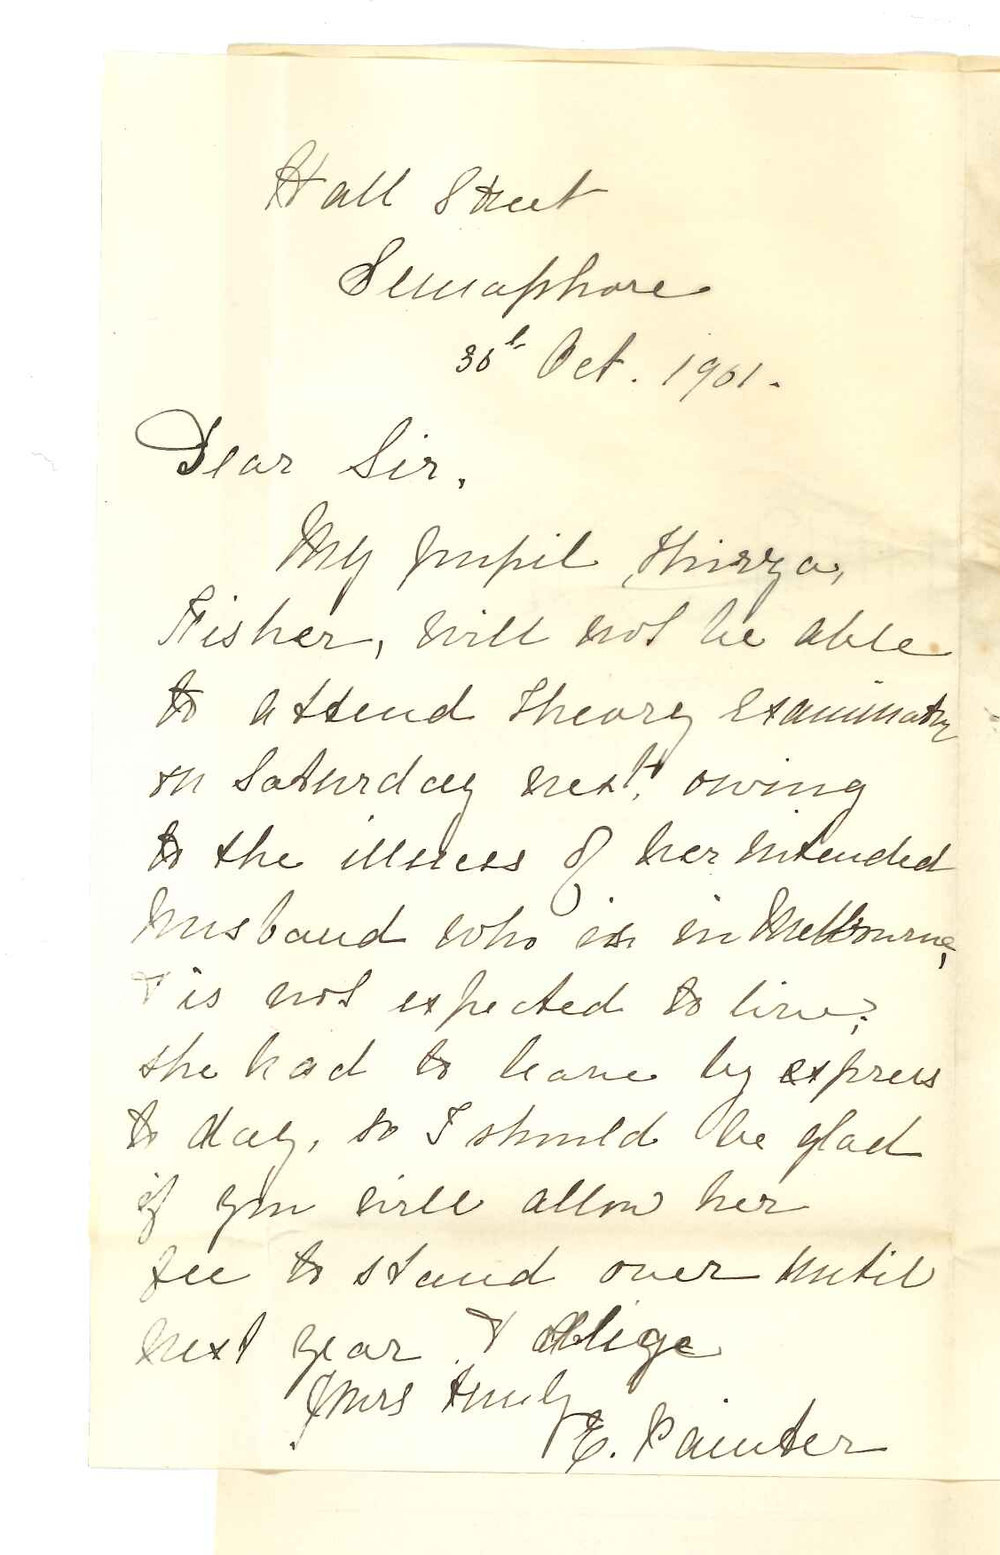 Hall Street
Semaphore
30th Oct. 1901.
Dear Sir,
My pupil, Thirza,
Fisher, will not be able
to attend Theory Examination
on Saturday next, owing
to the illness of her intended
husband who is in Melbourne,
& is not expected to live;
she had to leave by express
to day, so I should be glad
if you will allow her
fee to stand over until
next year & oblige
Yours truly
E. Painter